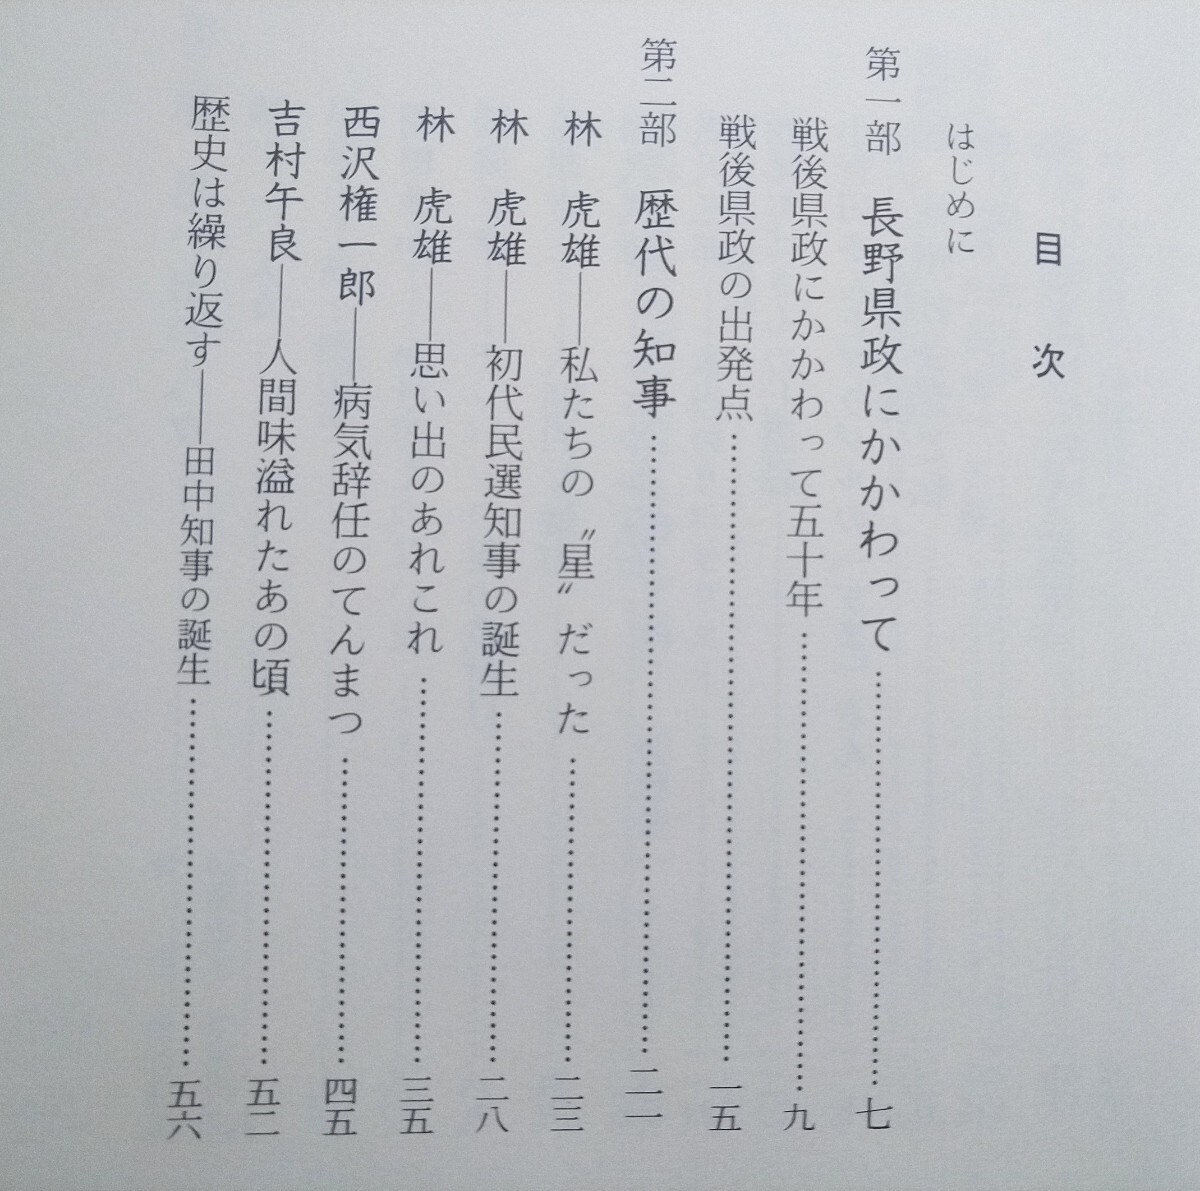 目 次
はじめに
第一部 長野県政にかかわって……………七
戦後県政にかかわって五十年……………九
戦後県政の出発点……………一五
第二部 歴代の知事……………二一
林 虎雄――私たちの〝星〟だった……………二三
林 虎雄――初代民選知事の誕生……………二八
林 虎雄――思い出のあれこれ……………三五
西沢権一郎――病気辞任のてんまつ……………四五
吉村午良――人間味溢れたあの頃……………五二
歴史は繰り返す――田中知事の誕生……………五六